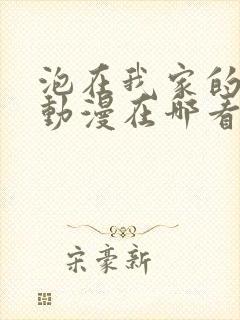 泡在我家的
動漫在哪看
宋豪新